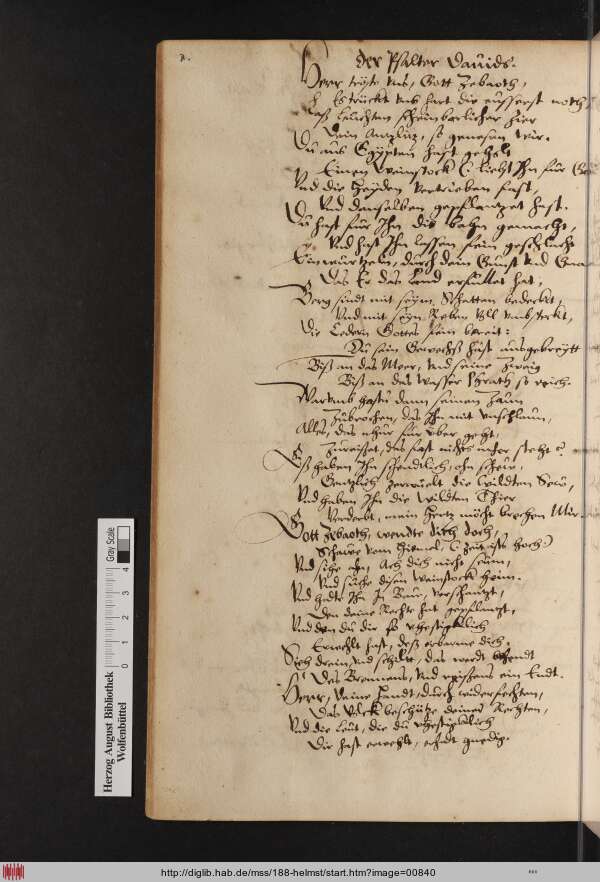 der Psalter Dauids.
Herr tröste uns, Gott Zebaoth,
Es trückt uns hart die eusserst noth,
Laß leuchten scheinbarlicher hier
Dein Antzliz, so genesen wir.
Du aus Egÿpten hast geholt
Einen Weinstock (: liebst Ihn für
Und die Heyden vertrieben fast,
Und denselben gepflantzet hast.
Du hast für Ihm die bahn gemacht,
Und hast Ihn lassen sein geschlecht
Einwurtzeln, durch dein Gunst und
Das Er das Land erfüllet hat,
Berg sindt mit seÿm Schatten bedeckt,
Und mit seÿn Reben voll umbsteckt,
Die Cedern Gottes sein bereit:
Du sein Gewechß hast ausgebreÿtt
Biß an das Meer, und seine Zweig
Biß an das Wasser Phrath so reich.
Warumb hastu dann seinen Zaun
Zubrochen, das Ihn mit
Alles, das nhur für über geht,
Zureisset, das fast nichts mher steht?
Eß haben Ihn schendtlich, ohn schew,
Gentzlich zerwuelt die wildten Sew,
Und haben Ihn die wildten Thier
Verderbt, mein Hertz möcht brechen Mir.
Gott Zebaoth, wendte dich doch,
Schawe vom Himel, (: Zeit ists hoch:)
Und sihe an, Ach dich nicht
Und suche disen Weinstock heim.
Und halte Ihn In Baw, verschantzt,
Den deine Rechte hat gepflantzt,
Und den du dir so
Erwehlt hast, deß erbarme dich.
Sieh drein, und schilt, das werdt
Des Brennens, und reissens ein Endt.
Herr, deine Handt, durch widerfechten,
Das Volck beschütze deiner Rechten,
Und die Leut, die du
Dir hast erwehlt, gnedig.
Herzog August Bibliothek
Wolfenbüttel
0 1 2 3 4
Gray Scale
http://diglib.hab.de/mss/188-helmst/start.htm?image=00840